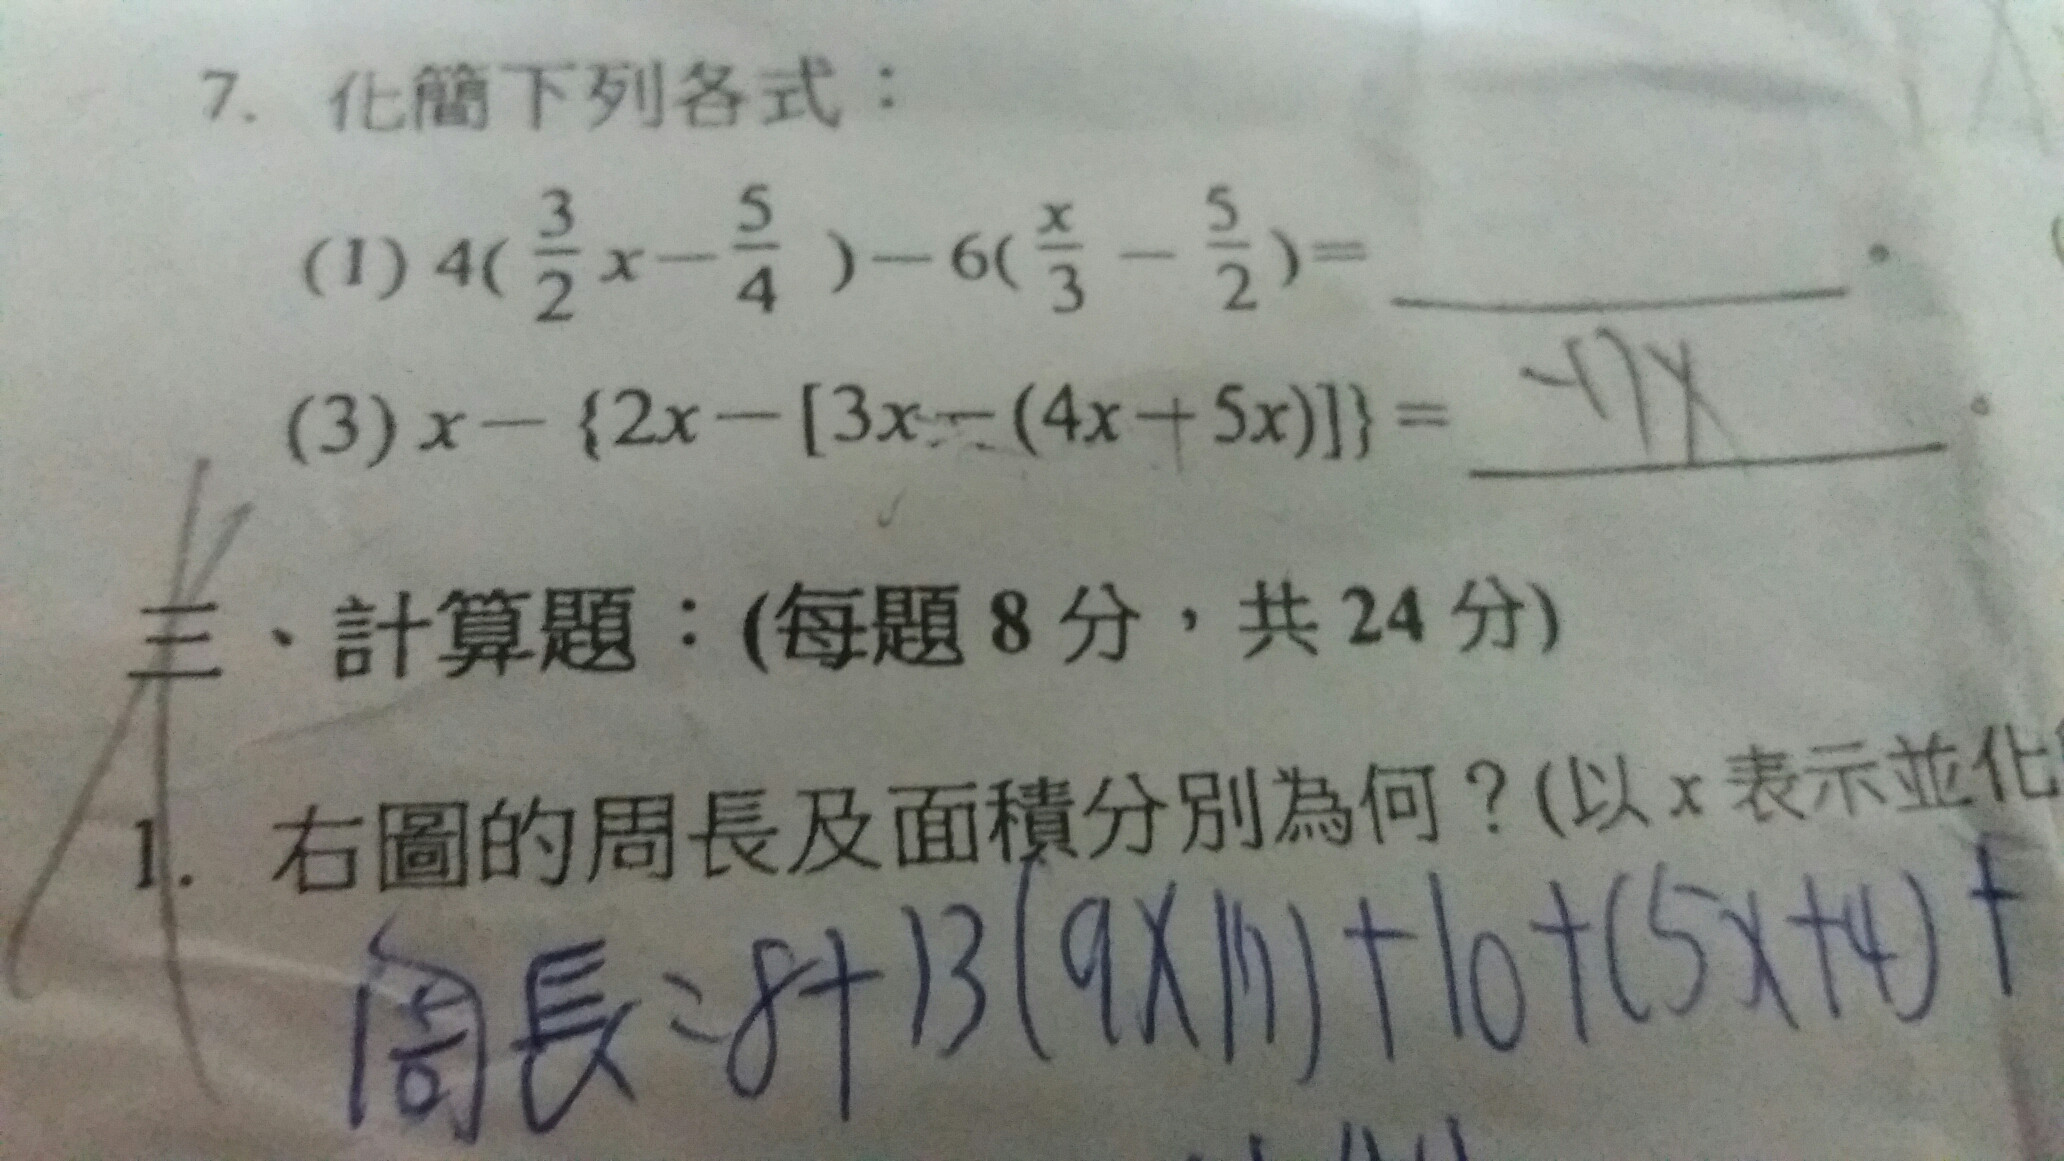 7. 化簡下列各式：
(1) 4( 3/2 x - 5/4 ) - 6( x/3 - 5/2 ) = ______。
(3) x - {2x - [3x - (4x + 5x)]} = -17x。
三、計算題：(每題 8 分，共 24 分)
1. 右圖的周長及面積分別為何？(以 x 表示並化
周長=8+13(9x17)+10+(5x+4)+